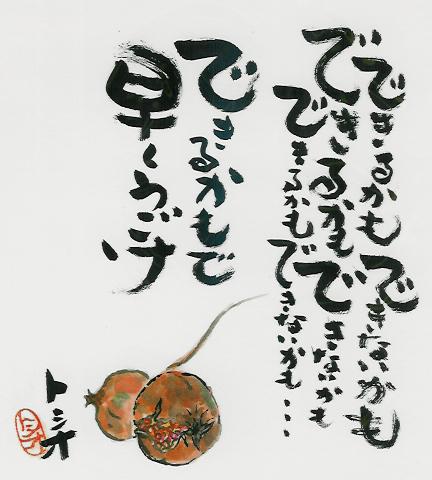 できるかもできないかも
できるかもできないかも
できるかもできないかも・・・
できるかもで
早くうごけ
トシオ